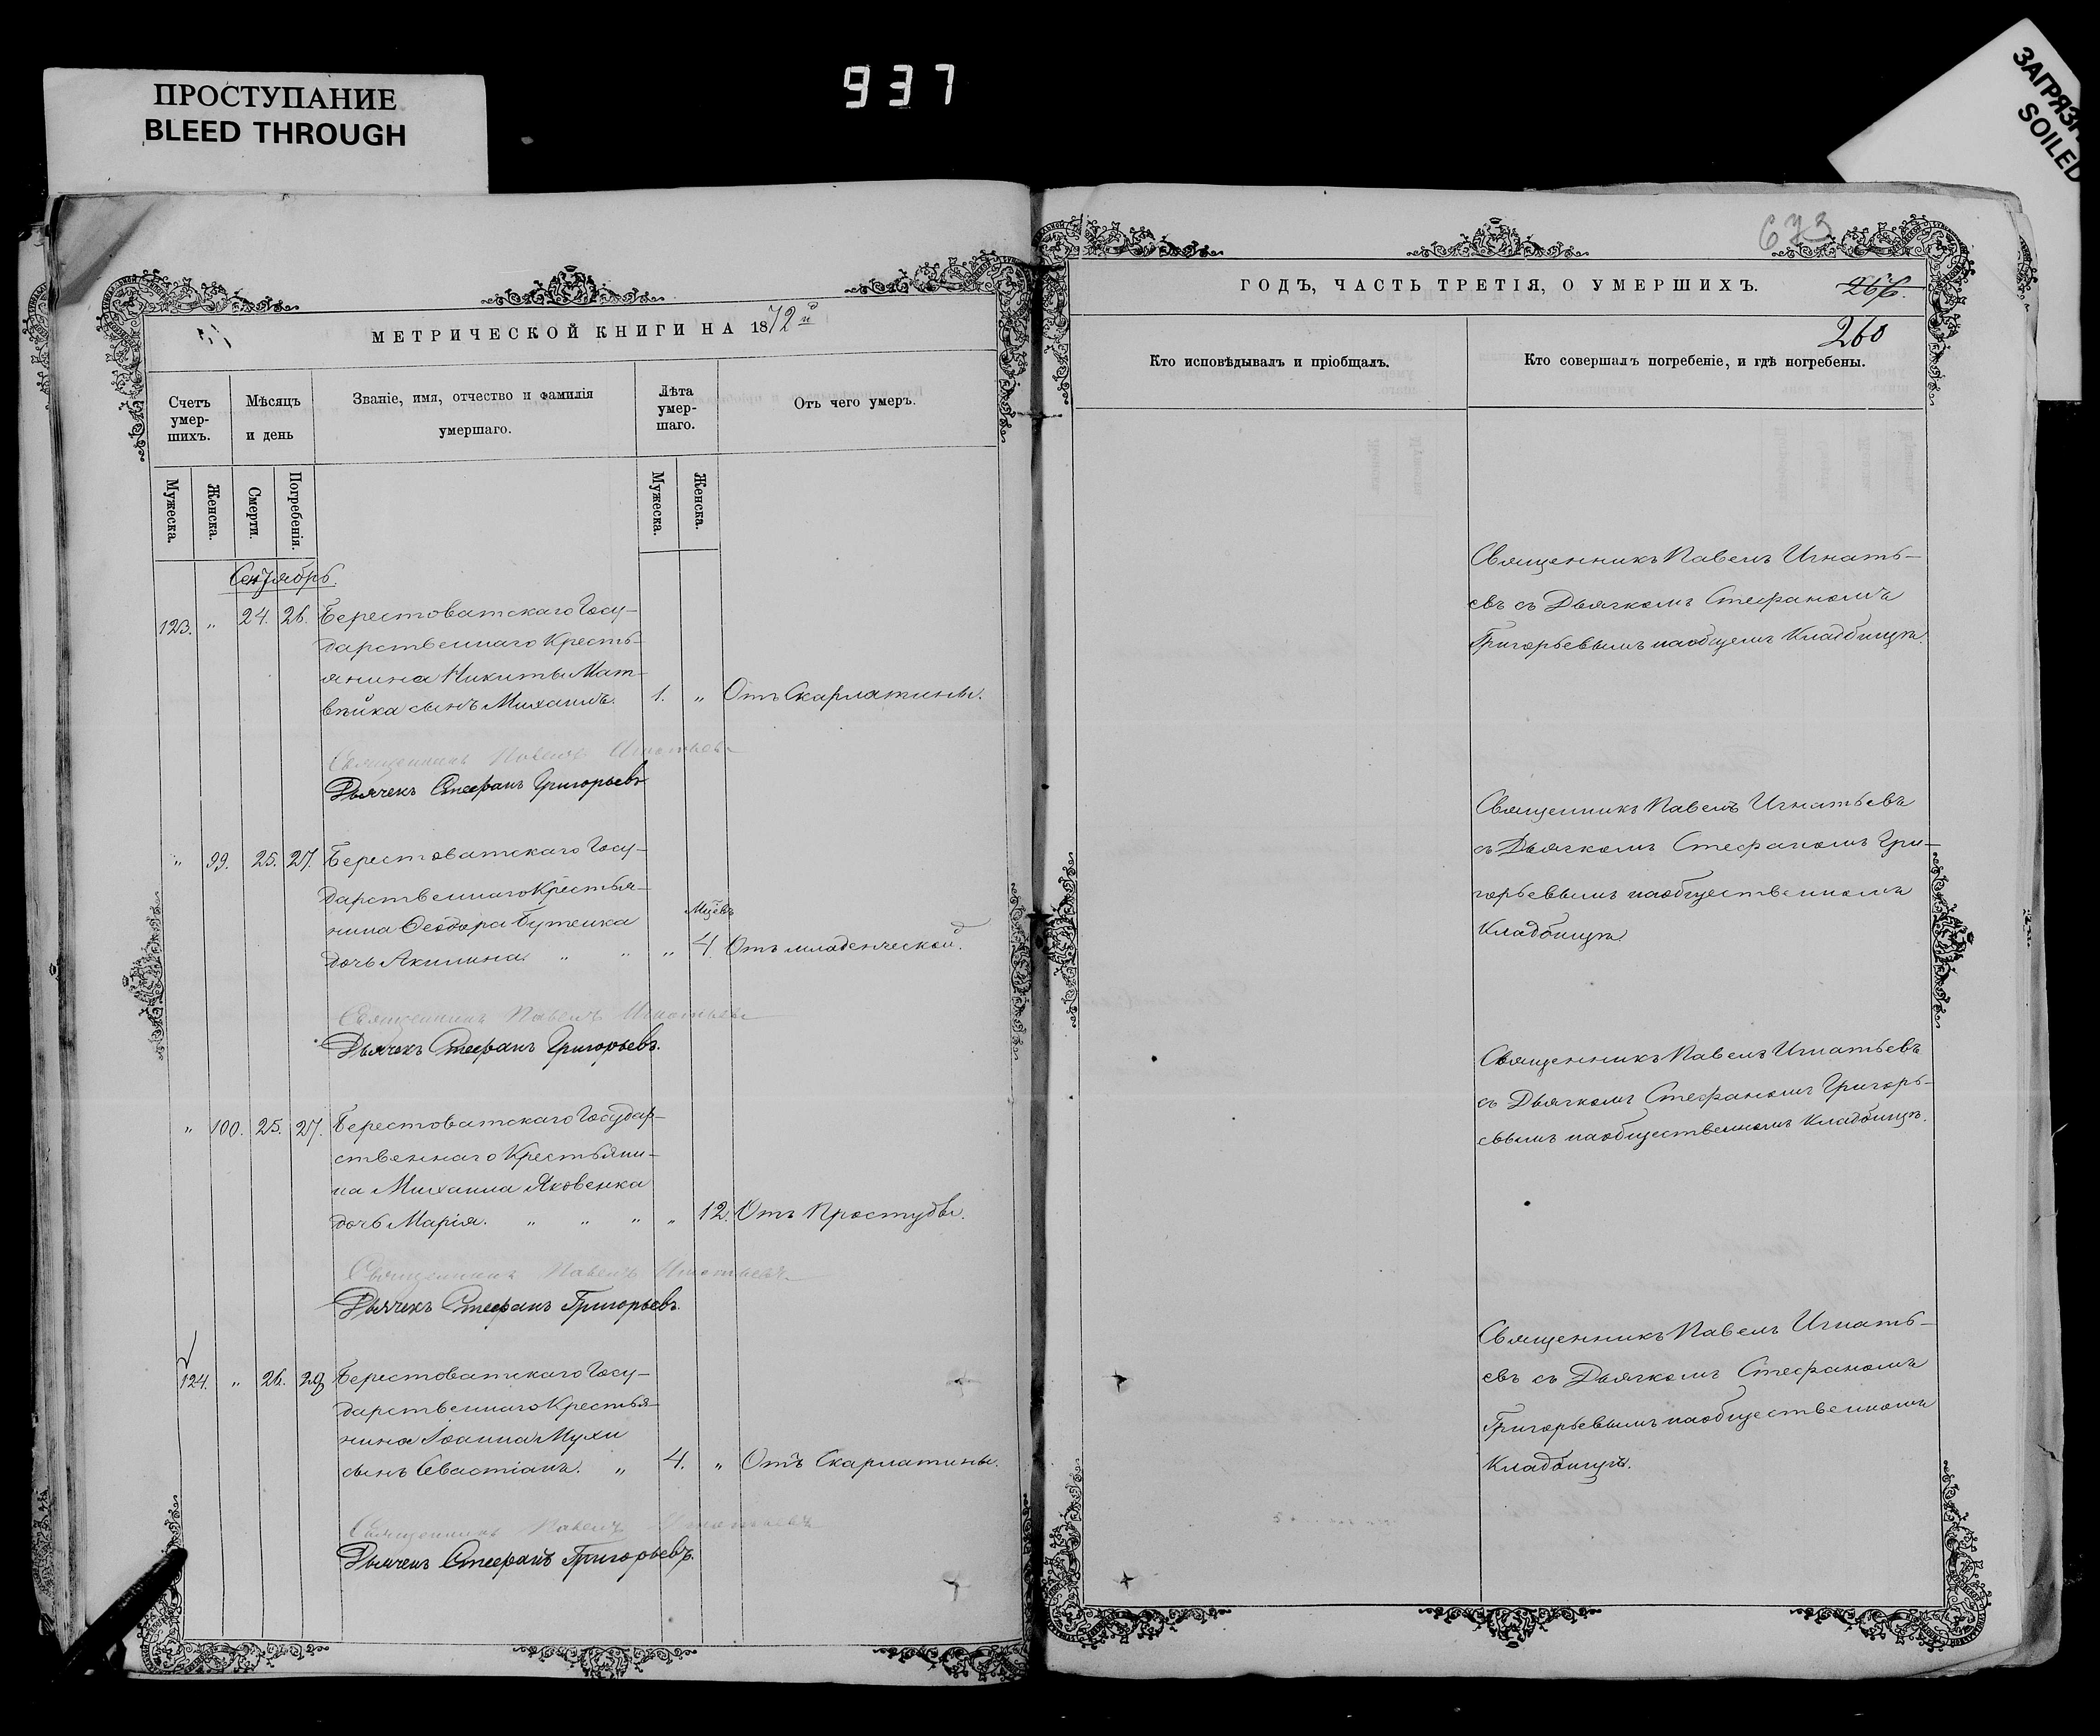 937
ПРОСТУПАНИЕ
BLEED THROUGH
SOILED
МЕТРИЧЕСКОЙ КНИГИ НА 1872й
Счетъ умер-шихъ.
Мѣсяцъ и день
Званіе, имя, отчество и фамилія умершаго.
Лѣта умер-шаго.
Отъ чего умеръ.
Мужеска.
Женска.
Смерти.
Погребенія.
Мужеска.
Женска.
Сентябрь.
123. " 24. 26. Берестоватскаго Госу-
дарственнаго Кресть-
янина Никиты Мат-
вѣйка сынъ Михаилъ. 1. " Отъ Скарлатины.
Священникъ Павелъ Игнатьевъ
Дьячекъ Стефанъ Григорьевъ
" 99. 25. 27. Берестоватскаго Госу-
дарственнаго Крестья-
нина Ѳеодора Бутенка
дочь Акилина " " " Мцевъ 4. Отъ младенческой.
Священникъ Павелъ Игнатьевъ
Дьячекъ Стефанъ Григорьевъ.
" 100. 25. 27. Берестоватскаго Государ-
ственнаго Крестьяни-
на Михаила Яковенка
дочь Марія. " " " " 12. Отъ Простуды.
Священникъ Павелъ Игнатьевъ
Дьячекъ Стефанъ Григорьевъ.
124. " 26. 29 Берестоватскаго Госу-
дарственнаго Крестья-
нина Іоанна Мухи
сынъ Севастіанъ. " 4. " Отъ Скарлатины.
Священникъ Павелъ Игнатьевъ
Дьячекъ Стефанъ Григорьевъ.
673
ГОДЪ, ЧАСТЬ ТРЕТІЯ, О УМЕРШИХЪ.
260
Кто исповѣдывалъ и пріобщалъ.
Кто совершалъ погребеніе, и гдѣ погребены.
Священникъ Павелъ Игнать-
евъ съ Дьячкомъ Стефаномъ
Григорьевымъ наобщемъ Кладбищѣ.
Священникъ Павелъ Игнатьевъ
съ Дьячкомъ Стефаномъ Гри-
горьевымъ наобщественномъ
Кладбищѣ.
Священникъ Павелъ Игнатьевъ
съ Дьячкомъ Стефаномъ Григорь-
евымъ наобщественномъ Кладбищѣ.
Священникъ Павелъ Игнать-
евъ съ Дьячкомъ Стефаномъ
Григорьевымъ наобщественномъ
Кладбищѣ.